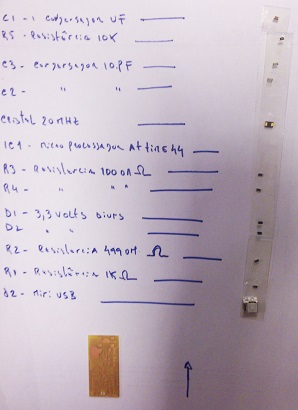 C1 - 1 condensador UF
R5 - Resistência 10K
C3 - condensador 10 PF
C2 - " "
cristal 20 MHz
IC1 - micro processador Attiny 44
R3 - Resistencia 100 OΩ
R4 - " " "
D1 - 3,3 volts
D2 " "
R2 - Resistencia 499 OM Ω
R1 - Resistência 1K Ω
J2 - Mini USB